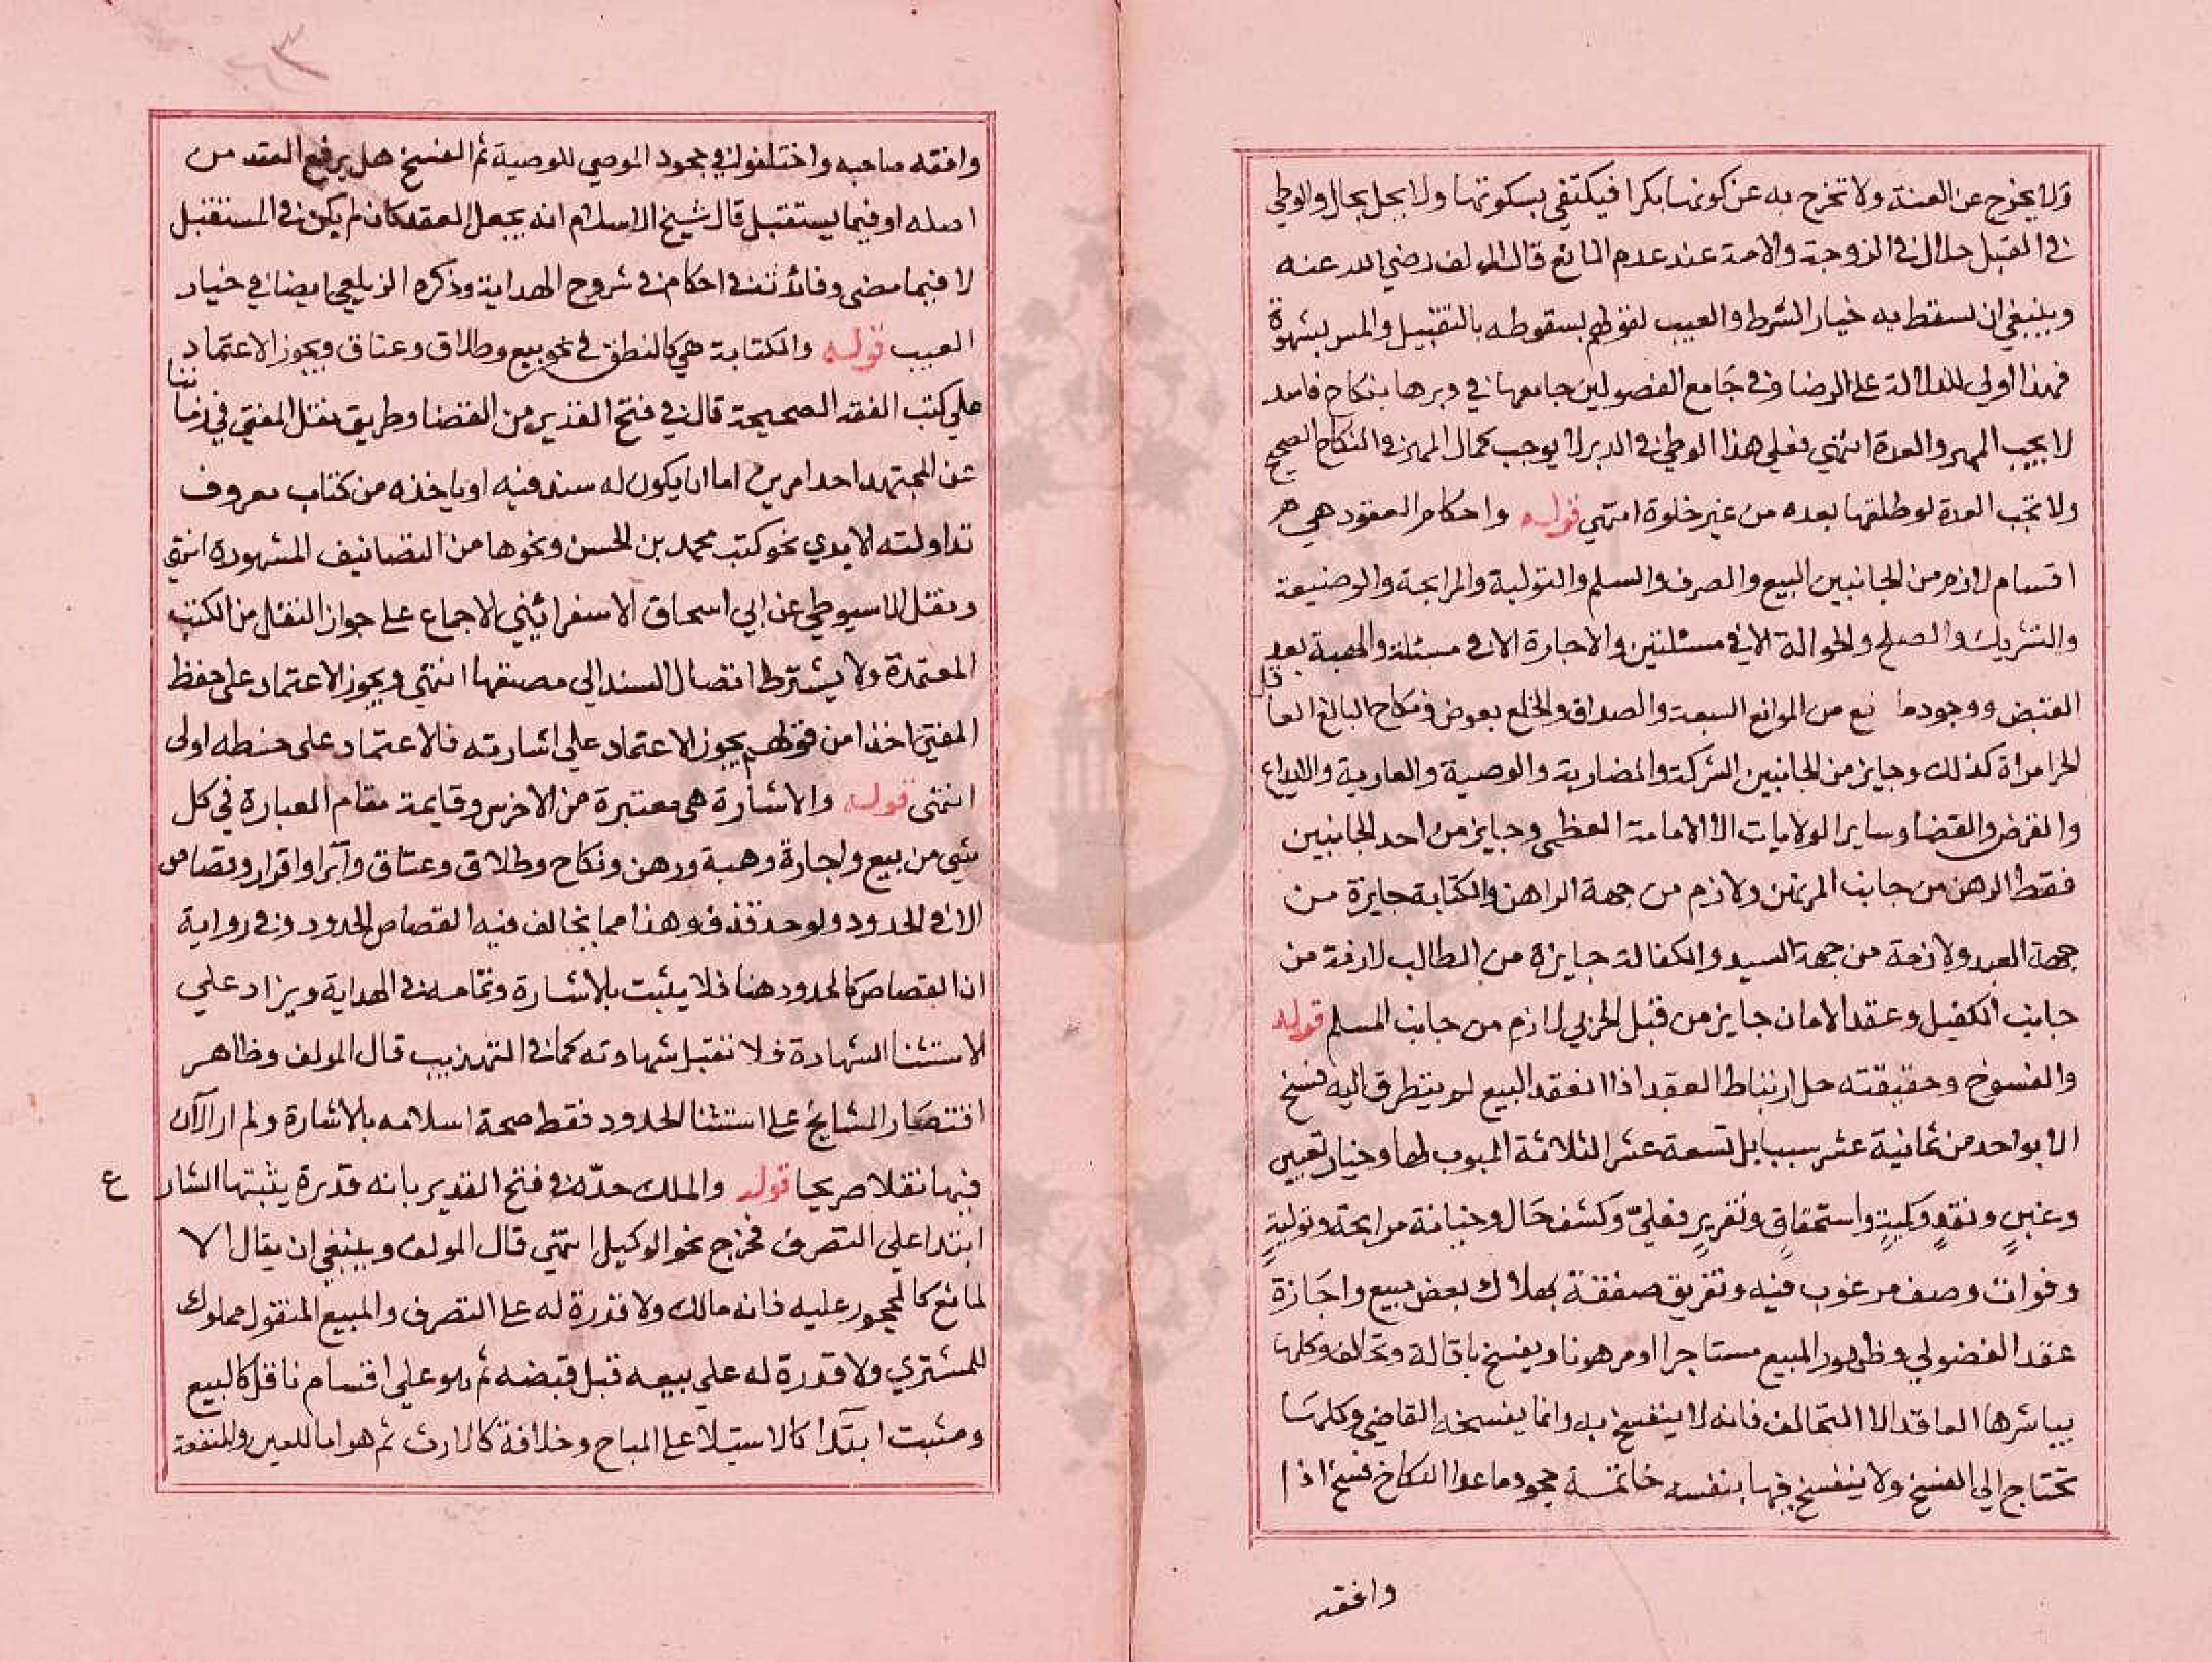 ولا يخرج عن العنة ولا تخرج به عن كونها بكرا فيكتفي بسكوتها ولا يحل بحال والوطي
في القبل حلال في الزوجة والامة عند عدم المانع قال المولف رضي الله عنه
وينبغي ان يسقط به خيار الشرط والعيب لقولهم بسقوطه بالتقبيل والمس بشهوة
فهذا اولى للدلالة على الرضا وفي جامع الفصولين جامعها في دبرها بنكاح فاسد
لا يجب المهر والعدة انتهي فعلي هذا الوطي في الدبر لا يوجب كمال المهر في النكاح الصحيح
ولا تجب العدة لو طلقها بعده من غير خلوة انتهي قوله واحكام العقود هي هر
اقسام لازم من الجانبين البيع والصرف والسلم والتولية والمرابحة والوضيعة
والتشريك والصلح والحوالة الا في مسئلتين والاجارة الا في مسئلة والهبة بعد
القبض ووجود مانع من الموانع السبعة والصداق والخلع بعوض ونكاح البالغ العاقل
الحر امراة كذلك وجايز من الجانبين الشركة والمضاربة والوصية والعارية والايداع
والقرض والقضا وساير الولايات الا الامامة العظمي وجايز من احد الجانبين
فقط الرهن من جانب المرتهن ولازم من جهة الراهن والكتابة جايزة من
جهة العبد ولازمة من جهة السيد والكفالة جايزة من الطالب لازمة من
جانب الكفيل وعقد الامان جايز من قبل الحربي لازم من جانب المسلم قوله
والفسوخ وحقيقته حل ارتباط العقد اذا انعقد البيع لم يتطرق اليه فسخ
الا بواحد من ثمانية عشر سببا بل تسعة عشر الثلاثة المبوب لها وخيار تعيين
وغبن ونقد وكمية واستحقاق وتغرير فعلي وكشف حال وخيانة مرابحة وتولية
وفوات وصف مرغوب فيه وتفريق صفقة بهلاك بعض مبيع واجازة
عقد الفضولي وظهور المبيع مستاجرا او مرهونا ويفسخ باقالة وتحالف وكلها
يباشرها العاقد الا التحالف فانه لا ينفسخ به وانما يفسخه القاضي وكلها
تحتاج الي الفسخ ولا ينفسخ فيها بنفسه خاتمة جحود ما عدا النكاح فسخ اذا
وافقه
وافقه صاحبه واختلفوا في جحود الموصي للوصية ثم الفسخ هل يرفع العقد من
اصله او فيما يستقبل قال شيخ الاسلام انه يجعل العقد كان لم يكن في المستقبل
لا فيما مضى وفائدته في احكام في شروح الهداية وذكره الزيلعي ايضا في خيار
العيب قوله والكتابة هي كالنطق في نحو بيع وطلاق وعتاق ويجوز الاعتماد
علي كتب الفقه الصحيحة قال في فتح القدير من القضا وطريق نقل المفتي في زماننا
عن المجتهد احد امرين اما ان يكون له سند فيه او ياخذه من كتاب معروف
تداولته الايدي نحو كتب محمد بن الحسن ونحوها من التصانيف المشهورة انتهي
ونقل السيوطي عن ابي اسحاق الاسفرائيني الاجماع على جواز النقل من الكتب
المعتمدة ولا يشترط اتصال السند الي مصنفها انتهي ويجوز الاعتماد على حفظ
المفتي اخذا من قولهم يجوز الاعتماد علي اشارته فالاعتماد على حفظه اولى
انتهى قوله والاشارة هي معتبرة من الاخرس وقايمة مقام العبارة في كل
شي من بيع واجارة وهبة ورهن ونكاح وطلاق وعتاق وآبرا واقرار وقصاص
الا في الحدود ولو حد قذف وهذا مما يخالف فيه القصاص الحدود وفي رواية
ان القصاص كالحدود هنا فلا يثبت بالاشارة وتمامه في الهداية ويزاد علي
الاستثنا الشهادة فلا تقبل شهادته كما في التهذيب قال المولف وظاهر
اقتصار المشايخ على استثنا الحدود فقط صحة اسلامه بالاشارة ولم ار الآن
فيها نقلا صريحا قوله والملك حده في فتح القدير بانه قدرة يثبتها الشارع
ابتدا علي التصرف فخرج نحو الوكيل انتهي قال المولف وينبغي ان يقال الا
لمانع كالمحجور عليه فانه مالك ولا قدرة له على التصرف والمبيع المنقول مملوك
للمشتري ولا قدرة له علي بيعه قبل قبضه ثم هو علي اقسام ناقل كالبيع
ومثبت ابتدا كالاستيلا على المباح وخلافة كالارث ثم هو اما للعين والمنفعة